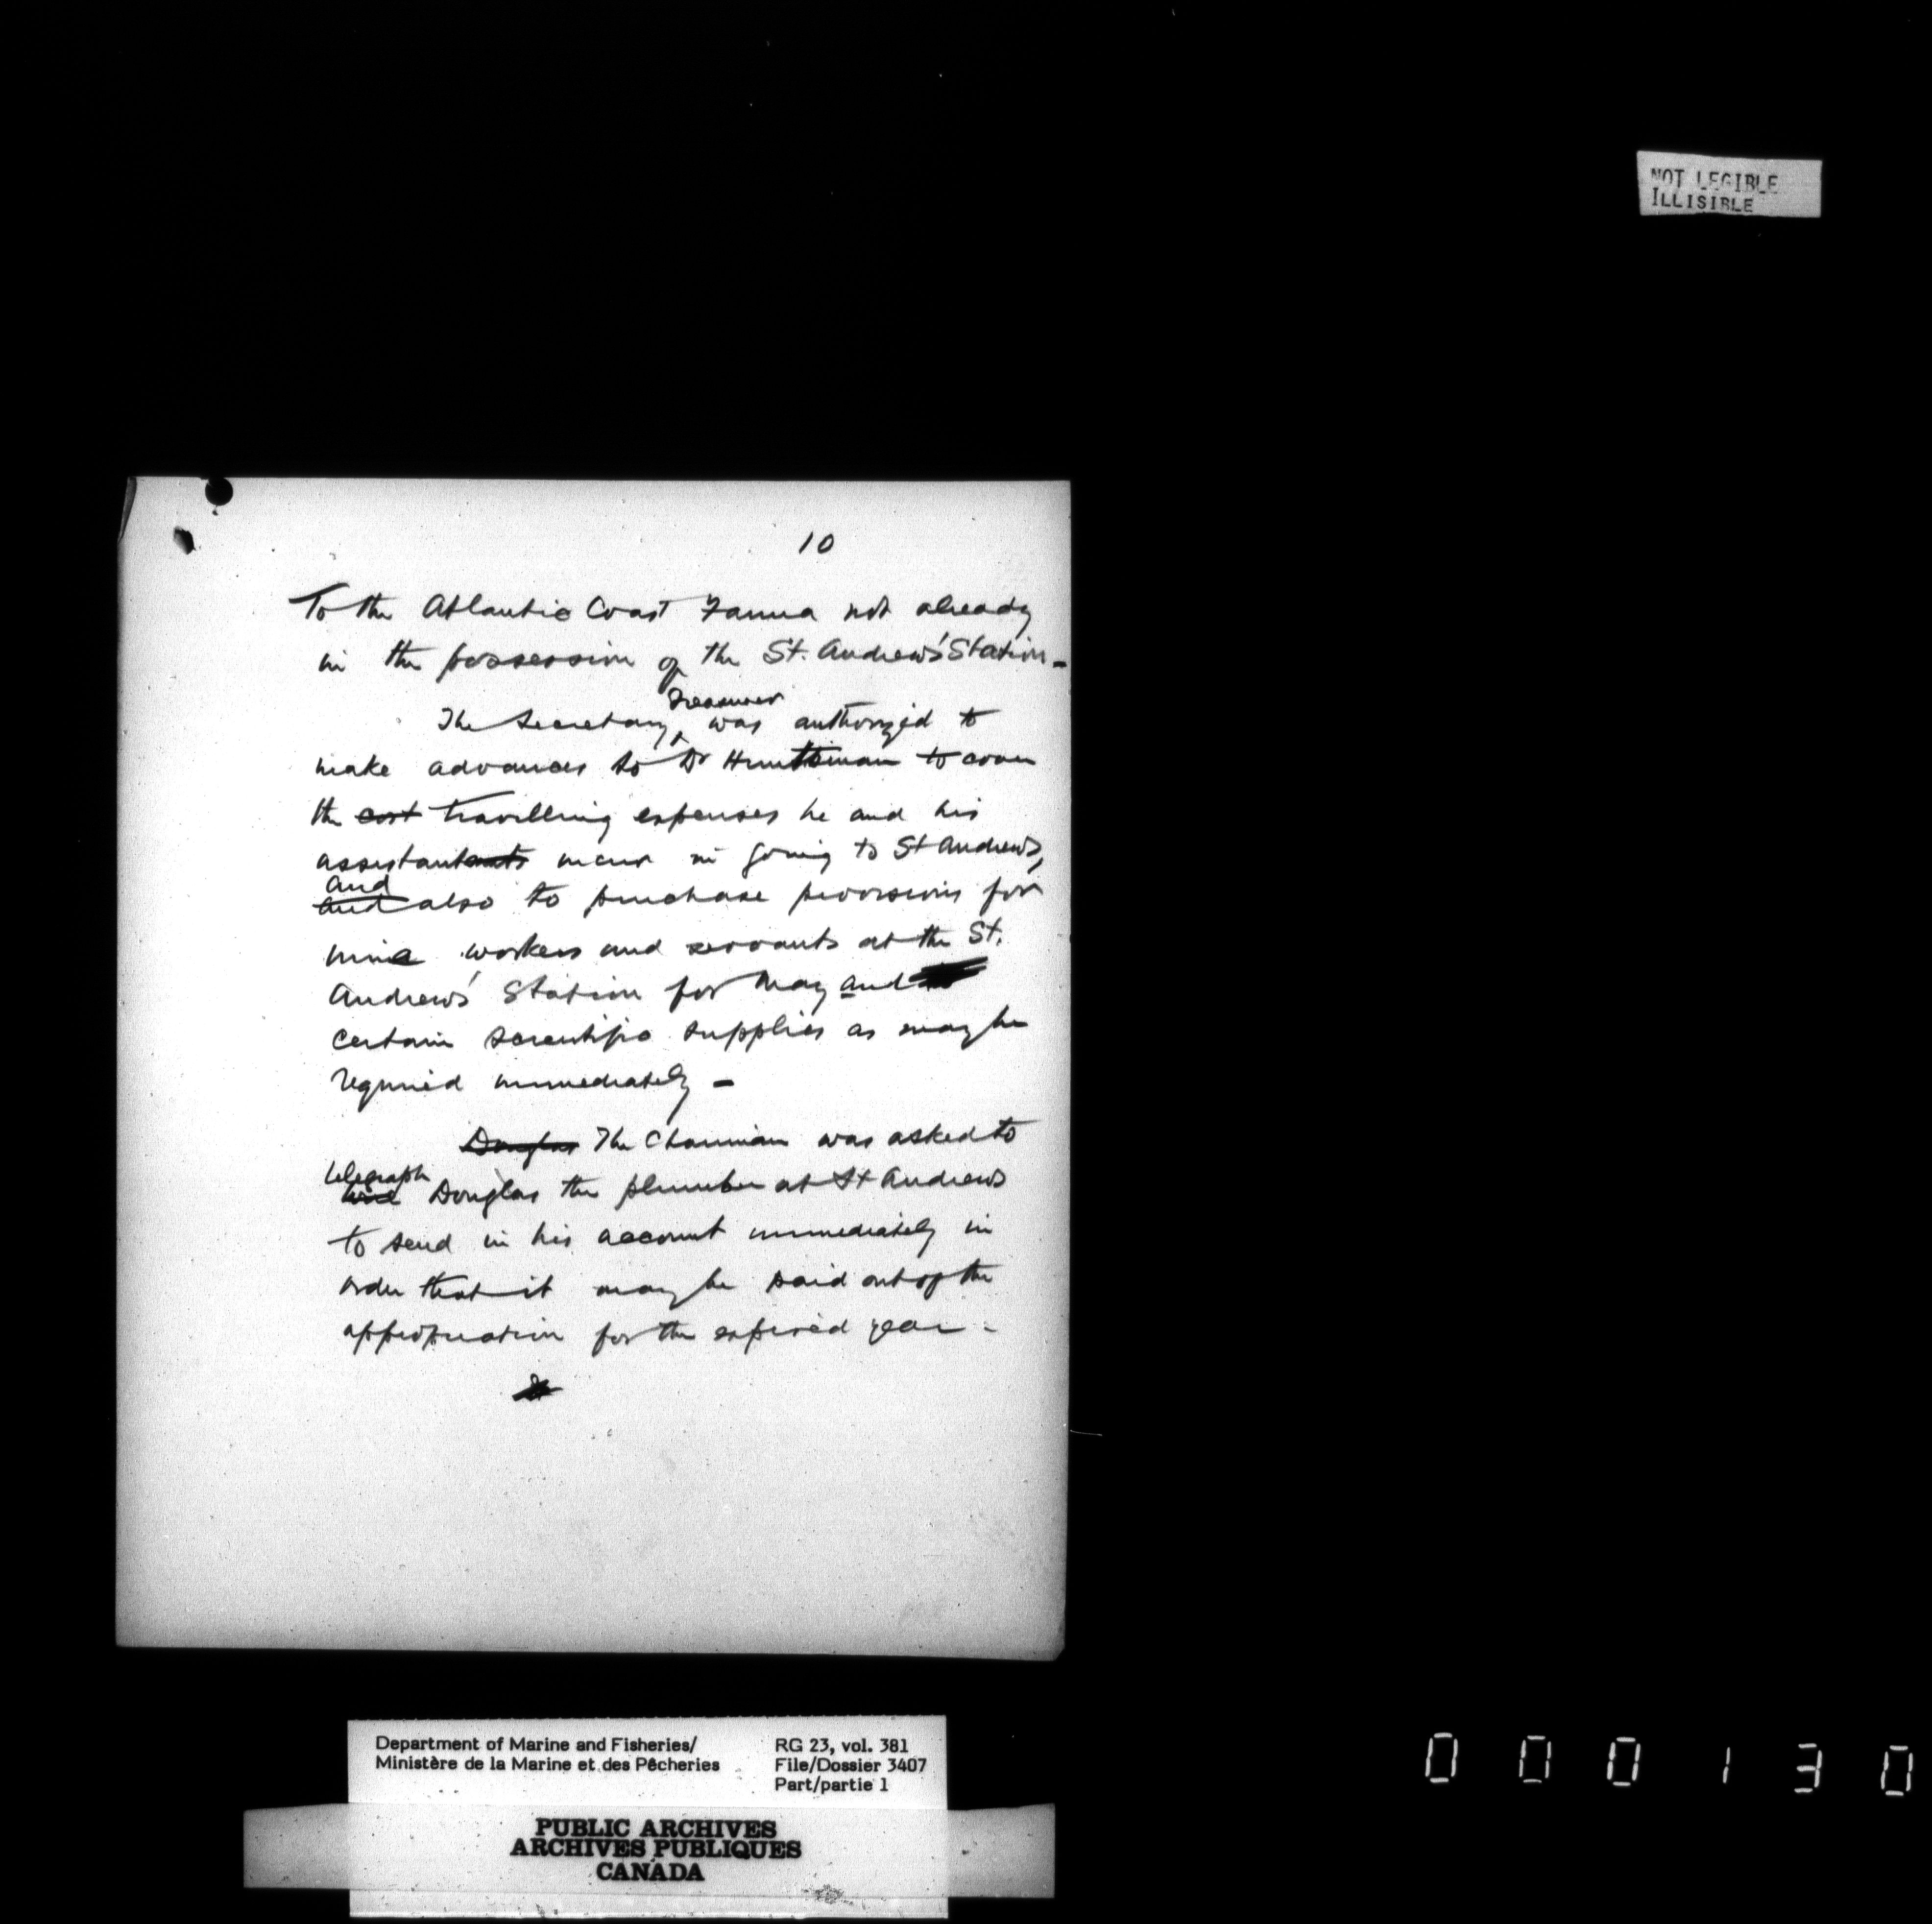 NOT LEGIBLE
ILLISIBLE
10
To the Atlantic Coast Fauna not already
in the possession of the St. Andrews' Station -
Treasurer
The Secretary, was authorized to
make advances to Dr Huntsman to cover
the cost travelling expenses he and his
assistants incur in going to St Andrews,
and
and also to purchase provisions for
nine workers and servants at the St.
Andrews' Station for May and
certain scientific supplies as may be
required immediately -
Douglas The Chairman was asked to
telegraph
wire Douglas the plumber at St Andrews
to send in his account immediately in
order that it may be paid out of the
appropriation for the expired year -
Department of Marine and Fisheries/
Ministère de la Marine et des Pêcheries
RG 23, vol. 381
File/Dossier 3407
Part/partie 1
PUBLIC ARCHIVES
ARCHIVES PUBLIQUES
CANADA
000130